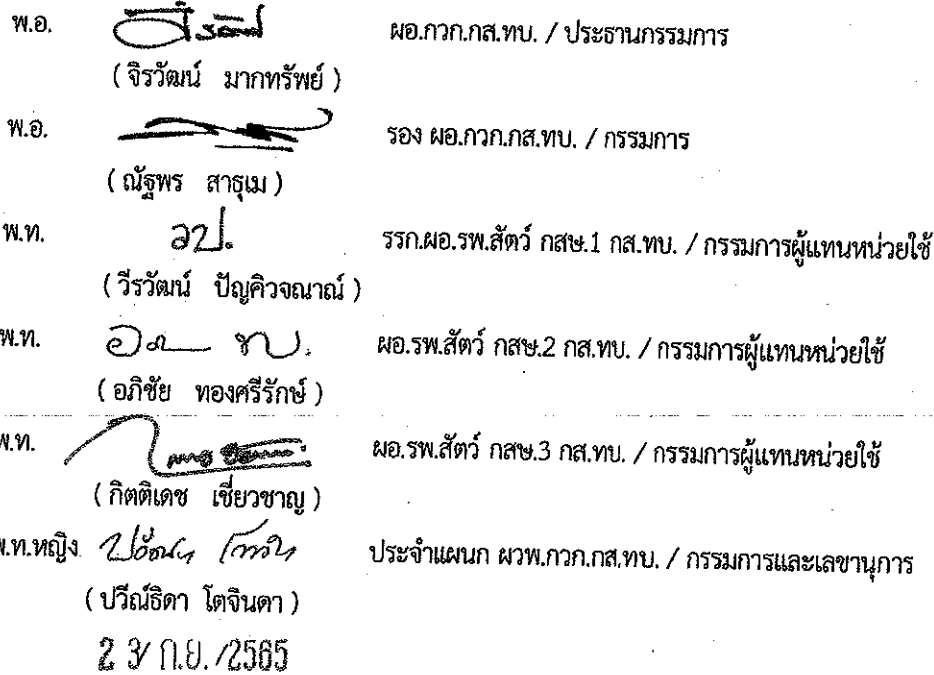 พ.อ. ผอ.กวก.กส.ทบ. / ประธานกรรมการ
( จิรวัฒน์ มากทรัพย์ )
พ.อ. รอง ผอ.กวก.กส.ทบ. / กรรมการ
( ณัฐพร สาธุเม )
พ.ท. วป. รรก.ผอ.รพ.สัตว์ กสษ.1 กส.ทบ. / กรรมการผู้แทนหน่วยใช้
( วีรวัฒน์ ปัญคิวจณาณ์ )
พ.ท. ผอ.รพ.สัตว์ กสษ.2 กส.ทบ. / กรรมการผู้แทนหน่วยใช้
( อภิชัย ทองศรีรักษ์ )
พ.ท. ผอ.รพ.สัตว์ กสษ.3 กส.ทบ. / กรรมการผู้แทนหน่วยใช้
( กิตติเดช เชี่ยวชาญ )
พ.ท.หญิง ประจำแผนก ผวพ.กวก.กส.ทบ. / กรรมการและเลขานุการ
( ปวีณ์ธิดา โตจินดา )
2 3/ ก.ย. /2565